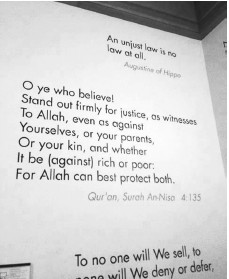 An unjust law is no
law at all.
Augustine of Hippo
O ye who believe!
Stand out firmly for justice, as witnesses
To Allah, even as against
Yourselves, or your parents,
Or your kin, and whether
It be (against) rich or poor:
For Allah can best protect both.
Qur'an, Surah An-Nisa 4:135
To no one will We sell, to
one will We deny or defer,